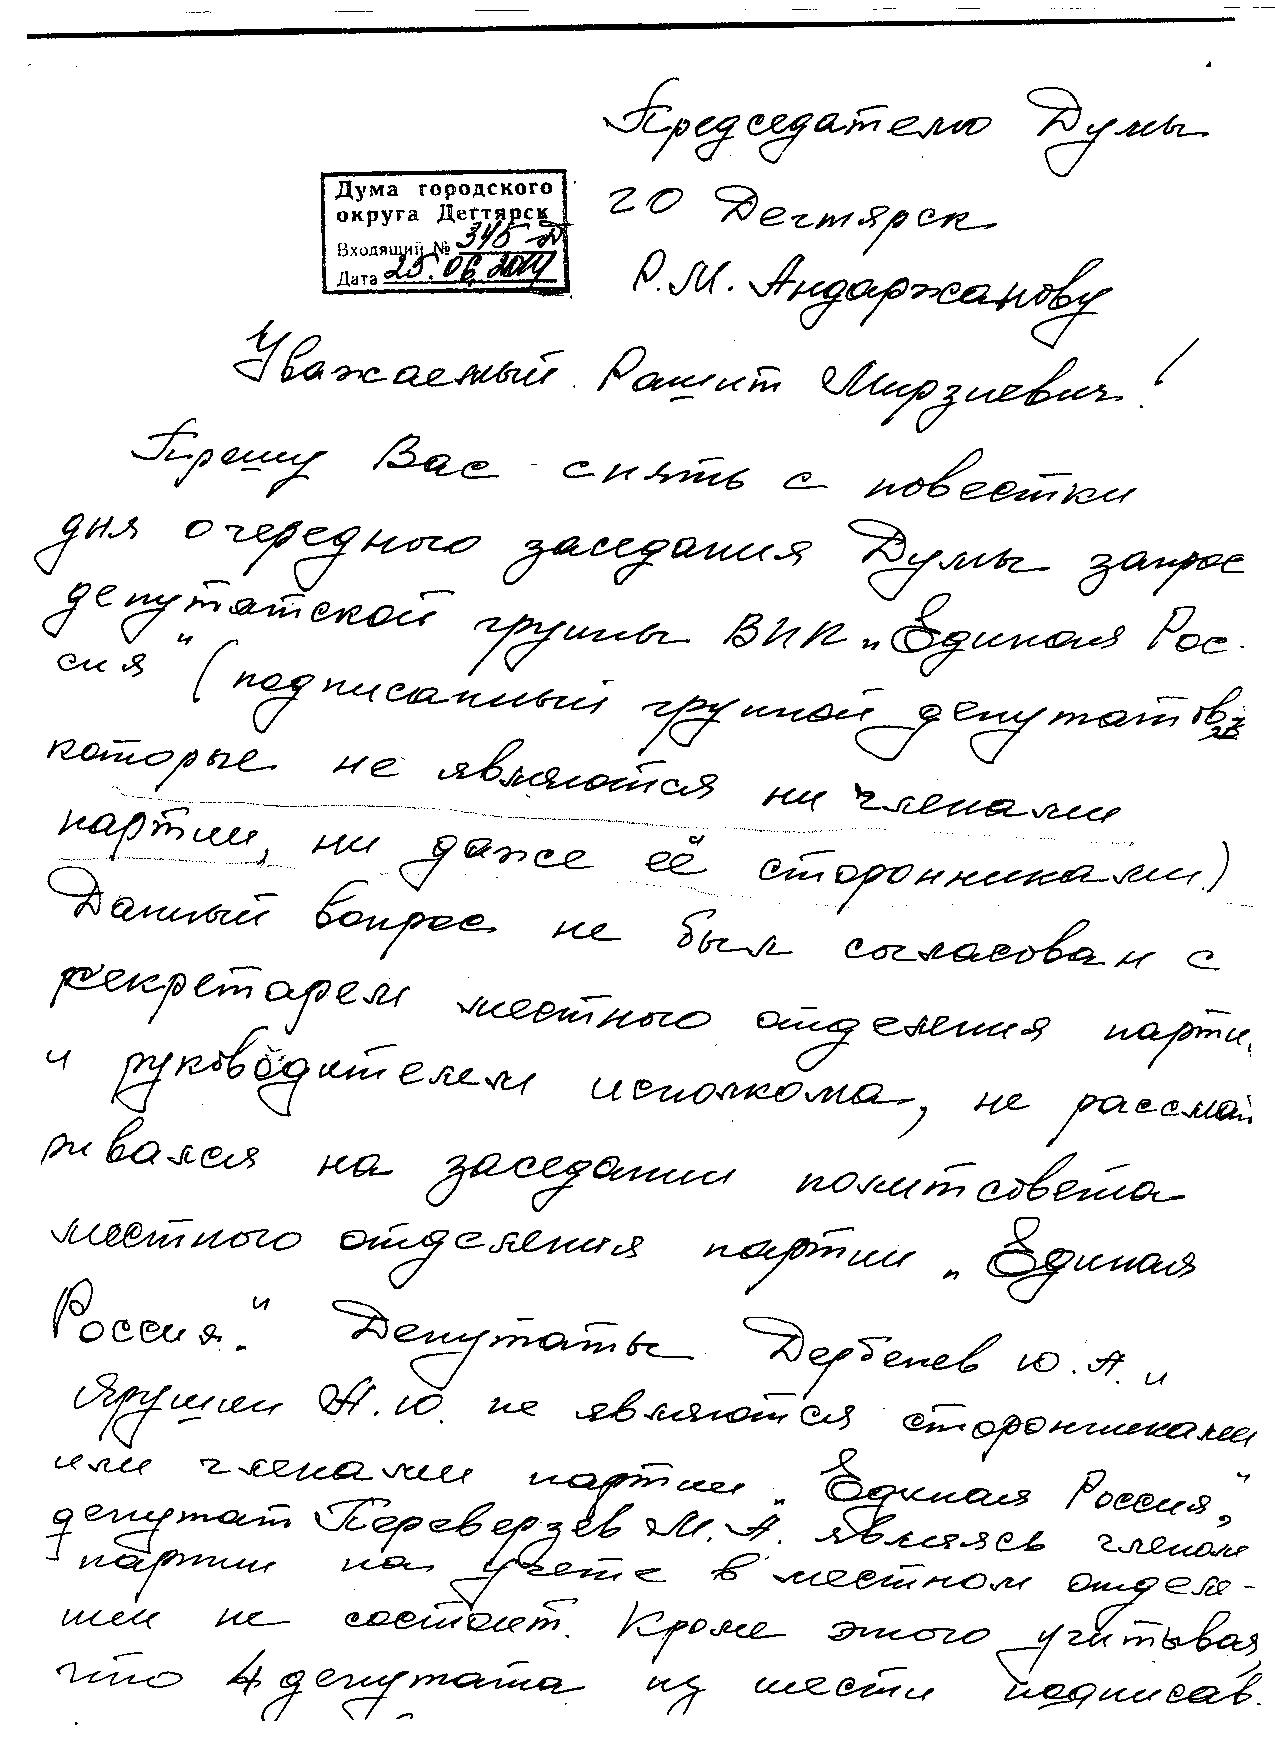 Председателю Думы
Дума городского
округа Дегтярск
Входящий № 345-Д
Дата 25.06.2014
ГО Дегтярск
Р.М. Андаржанову
Уважаемый Рашит Мирзиевич!
Прошу Вас снять с повестки
дня очередного заседания Думы запрос
депутатской группы ВПП „Единая Рос-
сия" (подписанный группой депутатов,
которые не являются ни членами
партии, ни даже её сторонниками)
Данный вопрос не был согласован с
секретарем местного отделения парти
и руководителем исполкома, не рассмат
ривался на заседании политсовета
местного отделения партии „Единая
Россия". Депутаты Дербенев Ю.А. и
Ярушин А.Ю. не являются сторонниками
или членами партии „Единая Россия",
депутат Переверзев М.А. являясь членом
партии на учете в местном отделе-
нии не состоит. Кроме этого учитывая,
что 4 депутата из шести подписав.